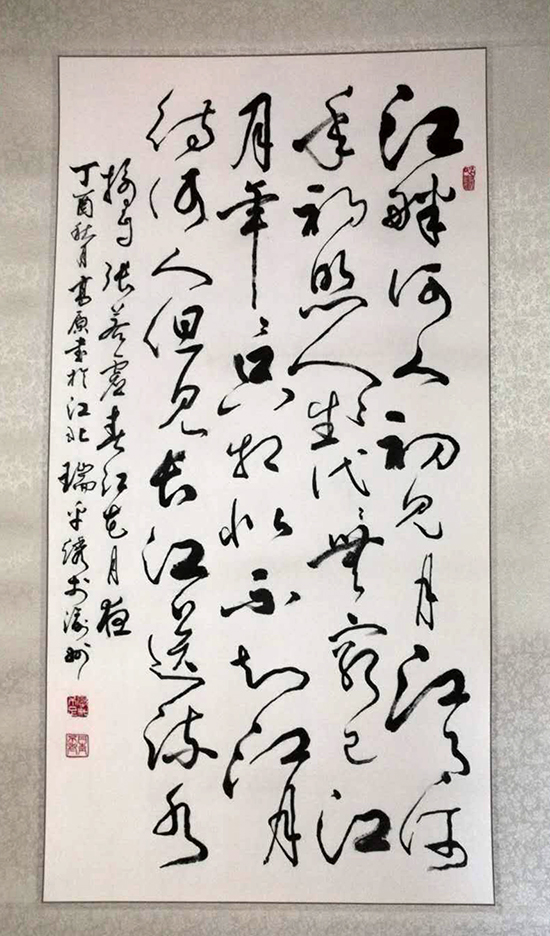 江畔何人初见月江月何
年初照人〻生代〻無窮已江
月年〻只相似不知江月
待何人但见长江送流水
摘自张若虚春江花月夜
丁酉秋月高原書於江北 瑞平绣於渝州